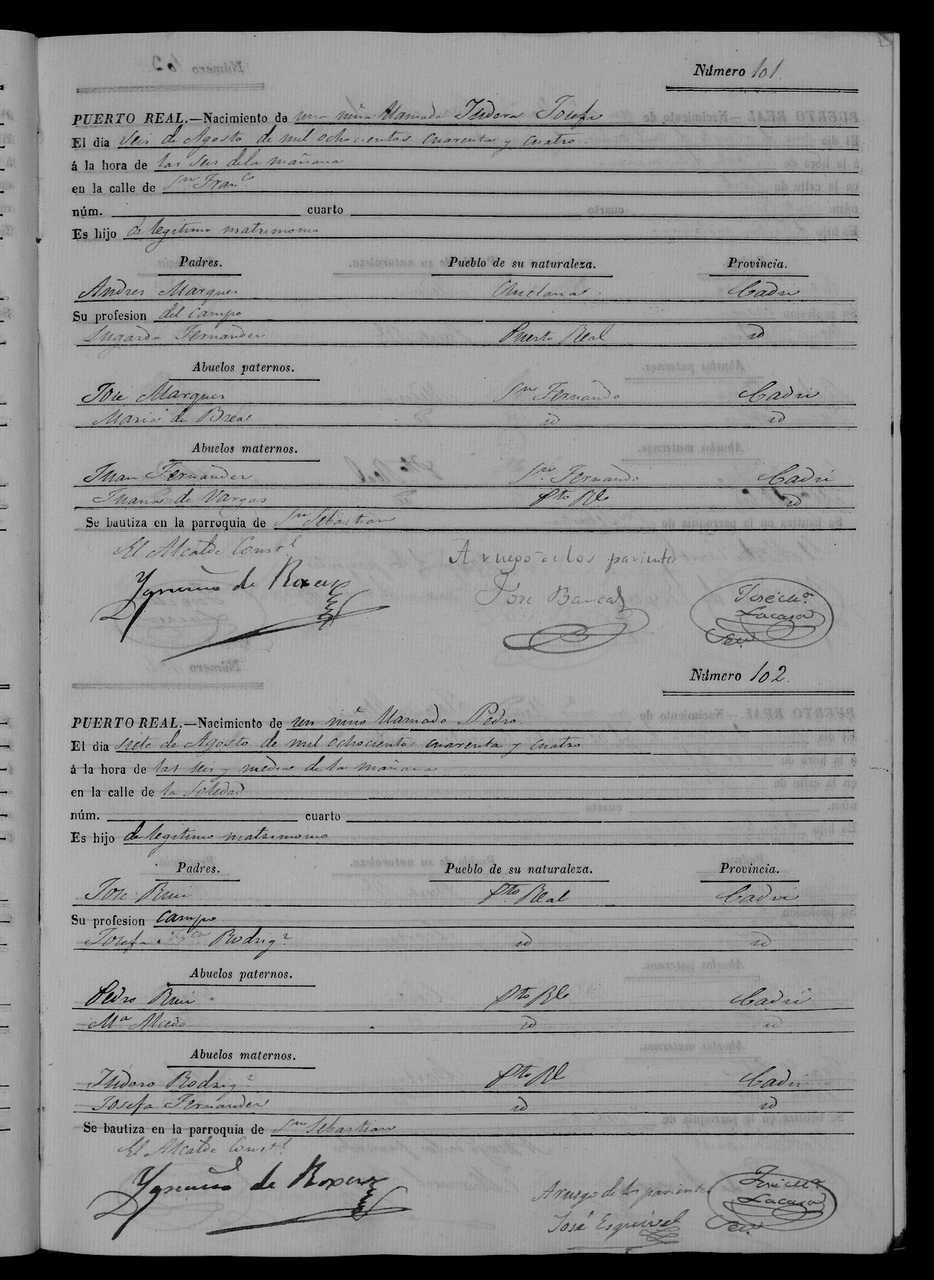 Número 101
PUERTO REAL.—Nacimiento de una niña llamada Isidora Josefa
El dia seis de Agosto de mil ochocientos cuarenta y cuatro
á la hora de las seis de la mañana
en la calle de Sn Franco
núm. cuarto
Es hijo de legitimo matrimonio
Padres. Pueblo de su naturaleza. Provincia.
Andres Marques Chiclana Cadiz
Su profesion del campo
Lugarda Fernandez Puerto Real id
Abuelos paternos.
José Marques Sn Fernando Cadiz
Maria de Breal id id
Abuelos maternos.
Juan Fernandez Sn Fernando Cadiz
Juana de Vargas Pto Rl id
Se bautiza en la parroquia de Sn Sebastian
El Alcalde Constl
A ruego de los parientes
Ygnacio de
José
José Ma
Lacasa
Seco
Número 102
PUERTO REAL.—Nacimiento de un niño llamado Pedro
El dia siete de Agosto de mil ochocientos cuarenta y cuatro
á la hora de las seis y media de la mañana
en la calle de la Soledad
núm. cuarto
Es hijo de legitimo matrimonio
Padres. Pueblo de su naturaleza. Provincia.
José Ruiz Pto Real Cadiz
Su profesion campo
Josefa Rodrigz id id
Abuelos paternos.
Pedro Ruiz Pto Rl Cadiz
Ma id id
Abuelos maternos.
Isidoro Rodrigz Pto Rl Cadiz
Josefa Fernandez id id
Se bautiza en la parroquia de Sn Sebastian
El Alcalde Constl
Ygnacio de
A ruego de los parientes
José Esquivel
José Ma
Lacasa
Seco